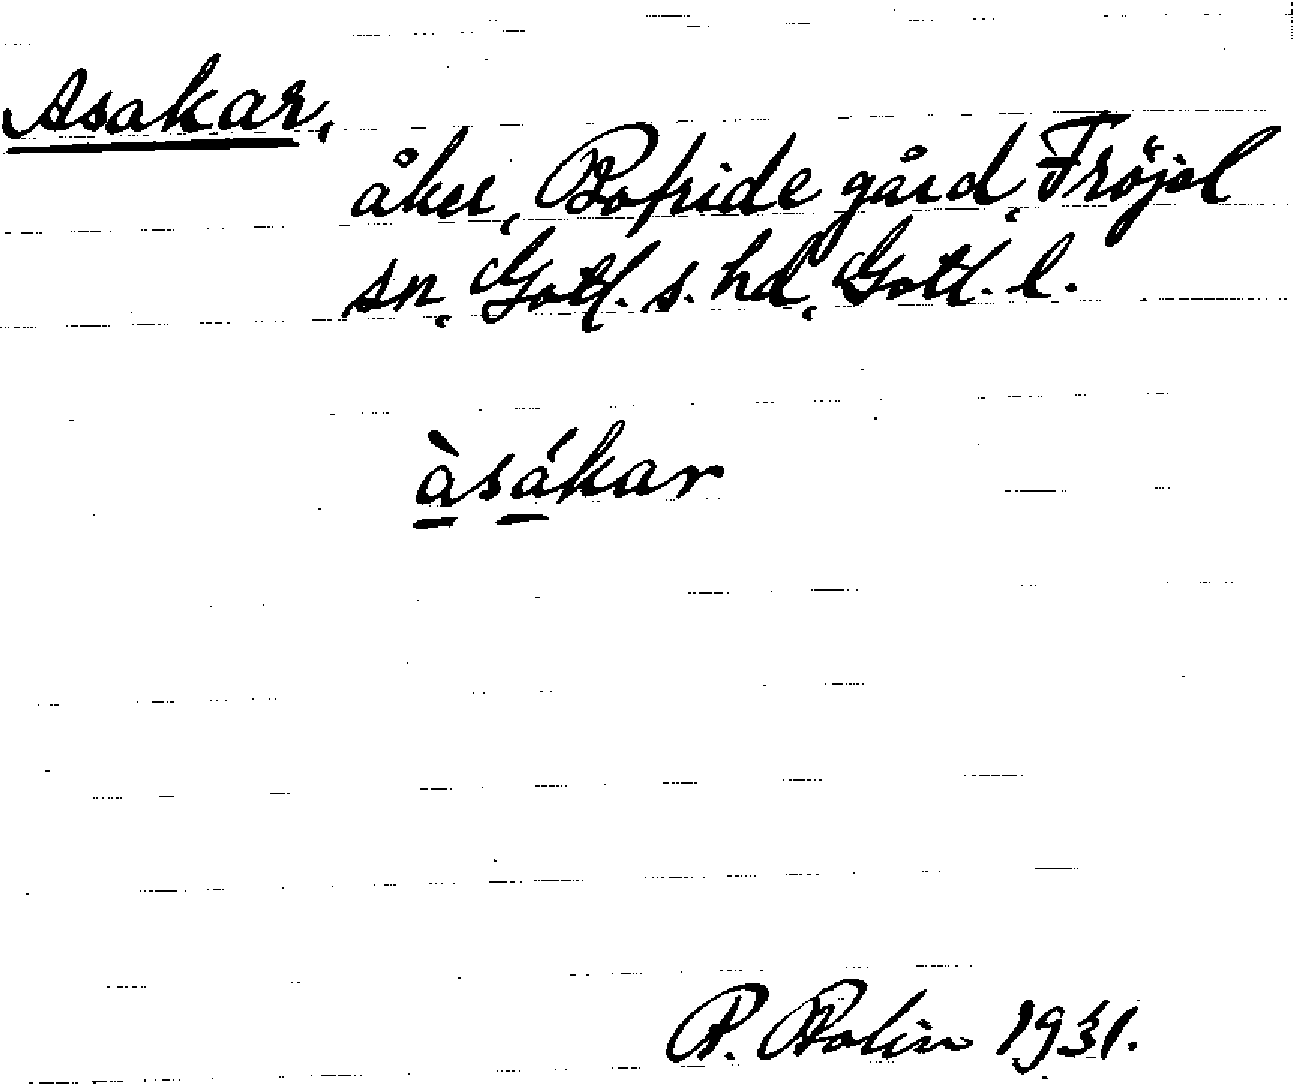 Asakar,
åker, Bofride gård, Fröjel
sn, Gotl. s. hd, Gotl. l.
àsákar
P. Bolin 1931.